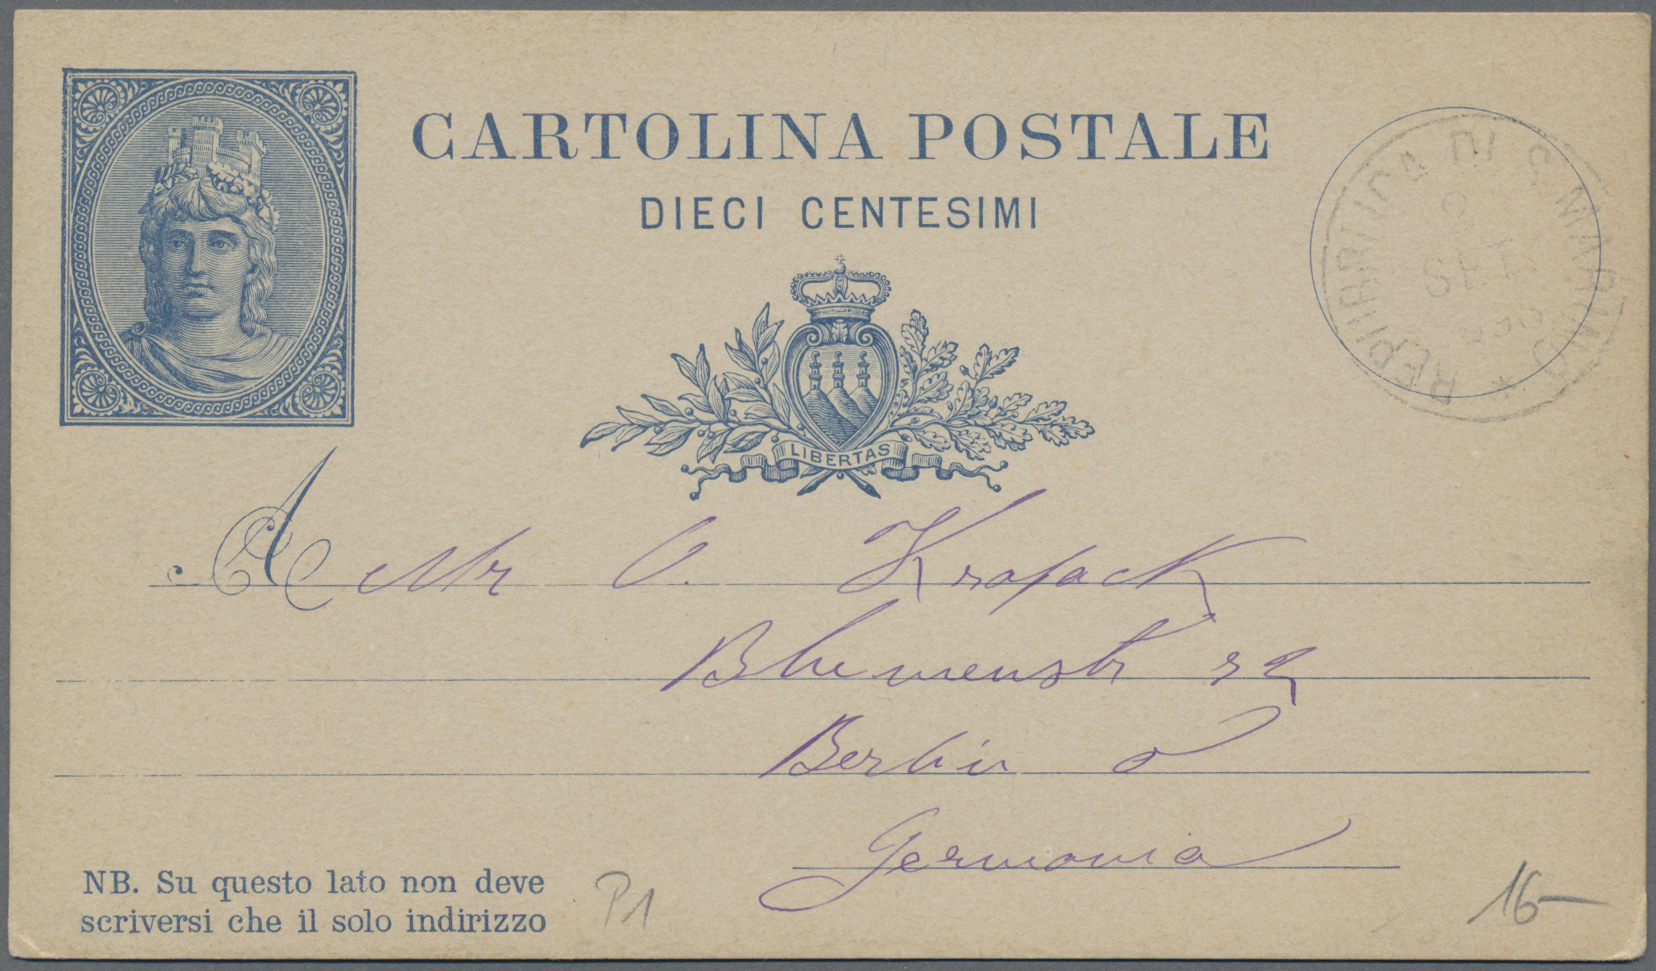 CARTOLINA POSTALE
DIECI CENTESIMI
REPUBBLICA DI S. MARINO
SET
LIBERTAS
A Mr O. Kropack
Blumenstr
Berlin O
Germania
NB. Su questo lato non deve
scriversi che il solo indirizzo
P1
16-